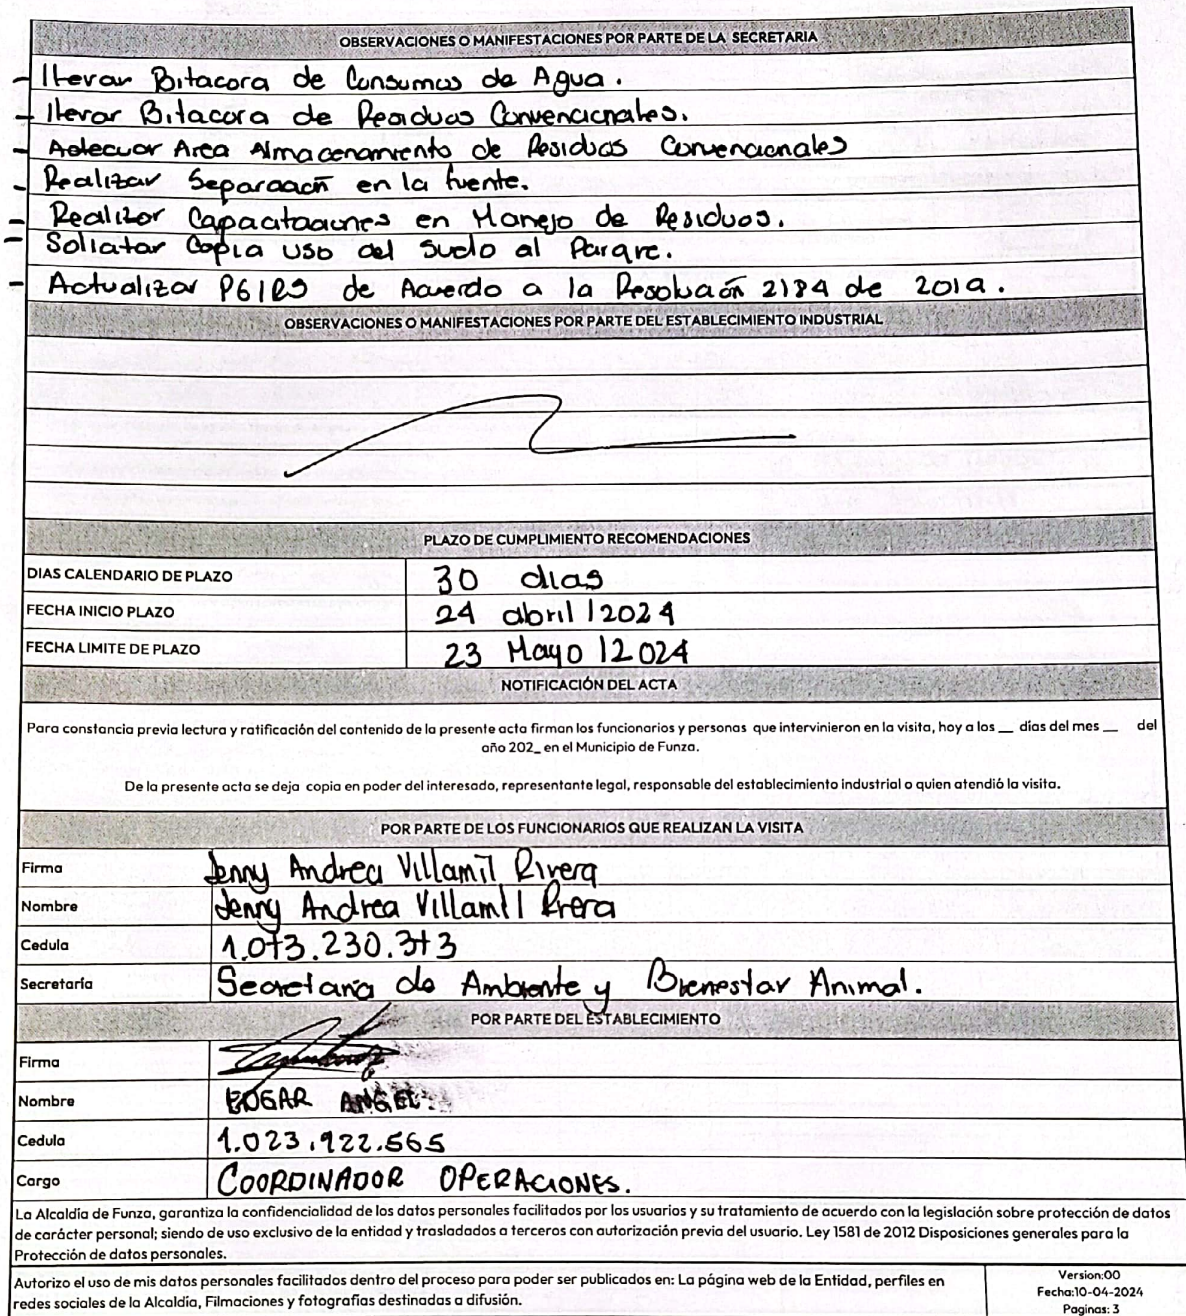 OBSERVACIONES O MANIFESTACIONES POR PARTE DE LA SECRETARIA
- llevar Bitacora de Consumos de Agua.
- llevar Bitacora de Residuos Convencionales.
- Adecuar Area Almacenamiento de Residuos Convencionales
- Realizar Separación en la fuente.
- Realizar Capacitaciones en Manejo de Residuos.
- Solicitar Copia uso del suelo al Parque.
- Actualizar PGIRS de Acuerdo a la Resolución 2184 de 2019.
OBSERVACIONES O MANIFESTACIONES POR PARTE DEL ESTABLECIMIENTO INDUSTRIAL
PLAZO DE CUMPLIMIENTO RECOMENDACIONES
DIAS CALENDARIO DE PLAZO 30 dias
FECHA INICIO PLAZO 24 abril /2024
FECHA LIMITE DE PLAZO 23 Mayo /2024
NOTIFICACIÓN DEL ACTA
Para constancia previa lectura y ratificación del contenido de la presente acta firman los funcionarios y personas que intervinieron en la visita, hoy a los __ días del mes __ del
año 202_ en el Municipio de Funza.
De la presente acta se deja copia en poder del interesado, representante legal, responsable del establecimiento industrial o quien atendió la visita.
POR PARTE DE LOS FUNCIONARIOS QUE REALIZAN LA VISITA
Firma Jenny Andrea Villamil Rivera
Nombre Jenny Andrea Villamil Rivera
Cedula 1.073.230.373
Secretaría Secretaria de Ambiente y Bienestar Animal.
POR PARTE DEL ESTABLECIMIENTO
Firma
Nombre EDGAR ANGEL
Cedula 1.023.922.565
Cargo COORDINADOR OPERACIONES.
La Alcaldía de Funza, garantiza la confidencialidad de los datos personales facilitados por los usuarios y su tratamiento de acuerdo con la legislación sobre protección de datos
de carácter personal; siendo de uso exclusivo de la entidad y trasladados a terceros con autorización previa del usuario. Ley 1581 de 2012 Disposiciones generales para la
Protección de datos personales.
Autorizo el uso de mis datos personales facilitados dentro del proceso para poder ser publicados en: La página web de la Entidad, perfiles en
redes sociales de la Alcaldía, Filmaciones y fotografías destinadas a difusión.
Version:00
Fecha:10-04-2024
Paginas: 3